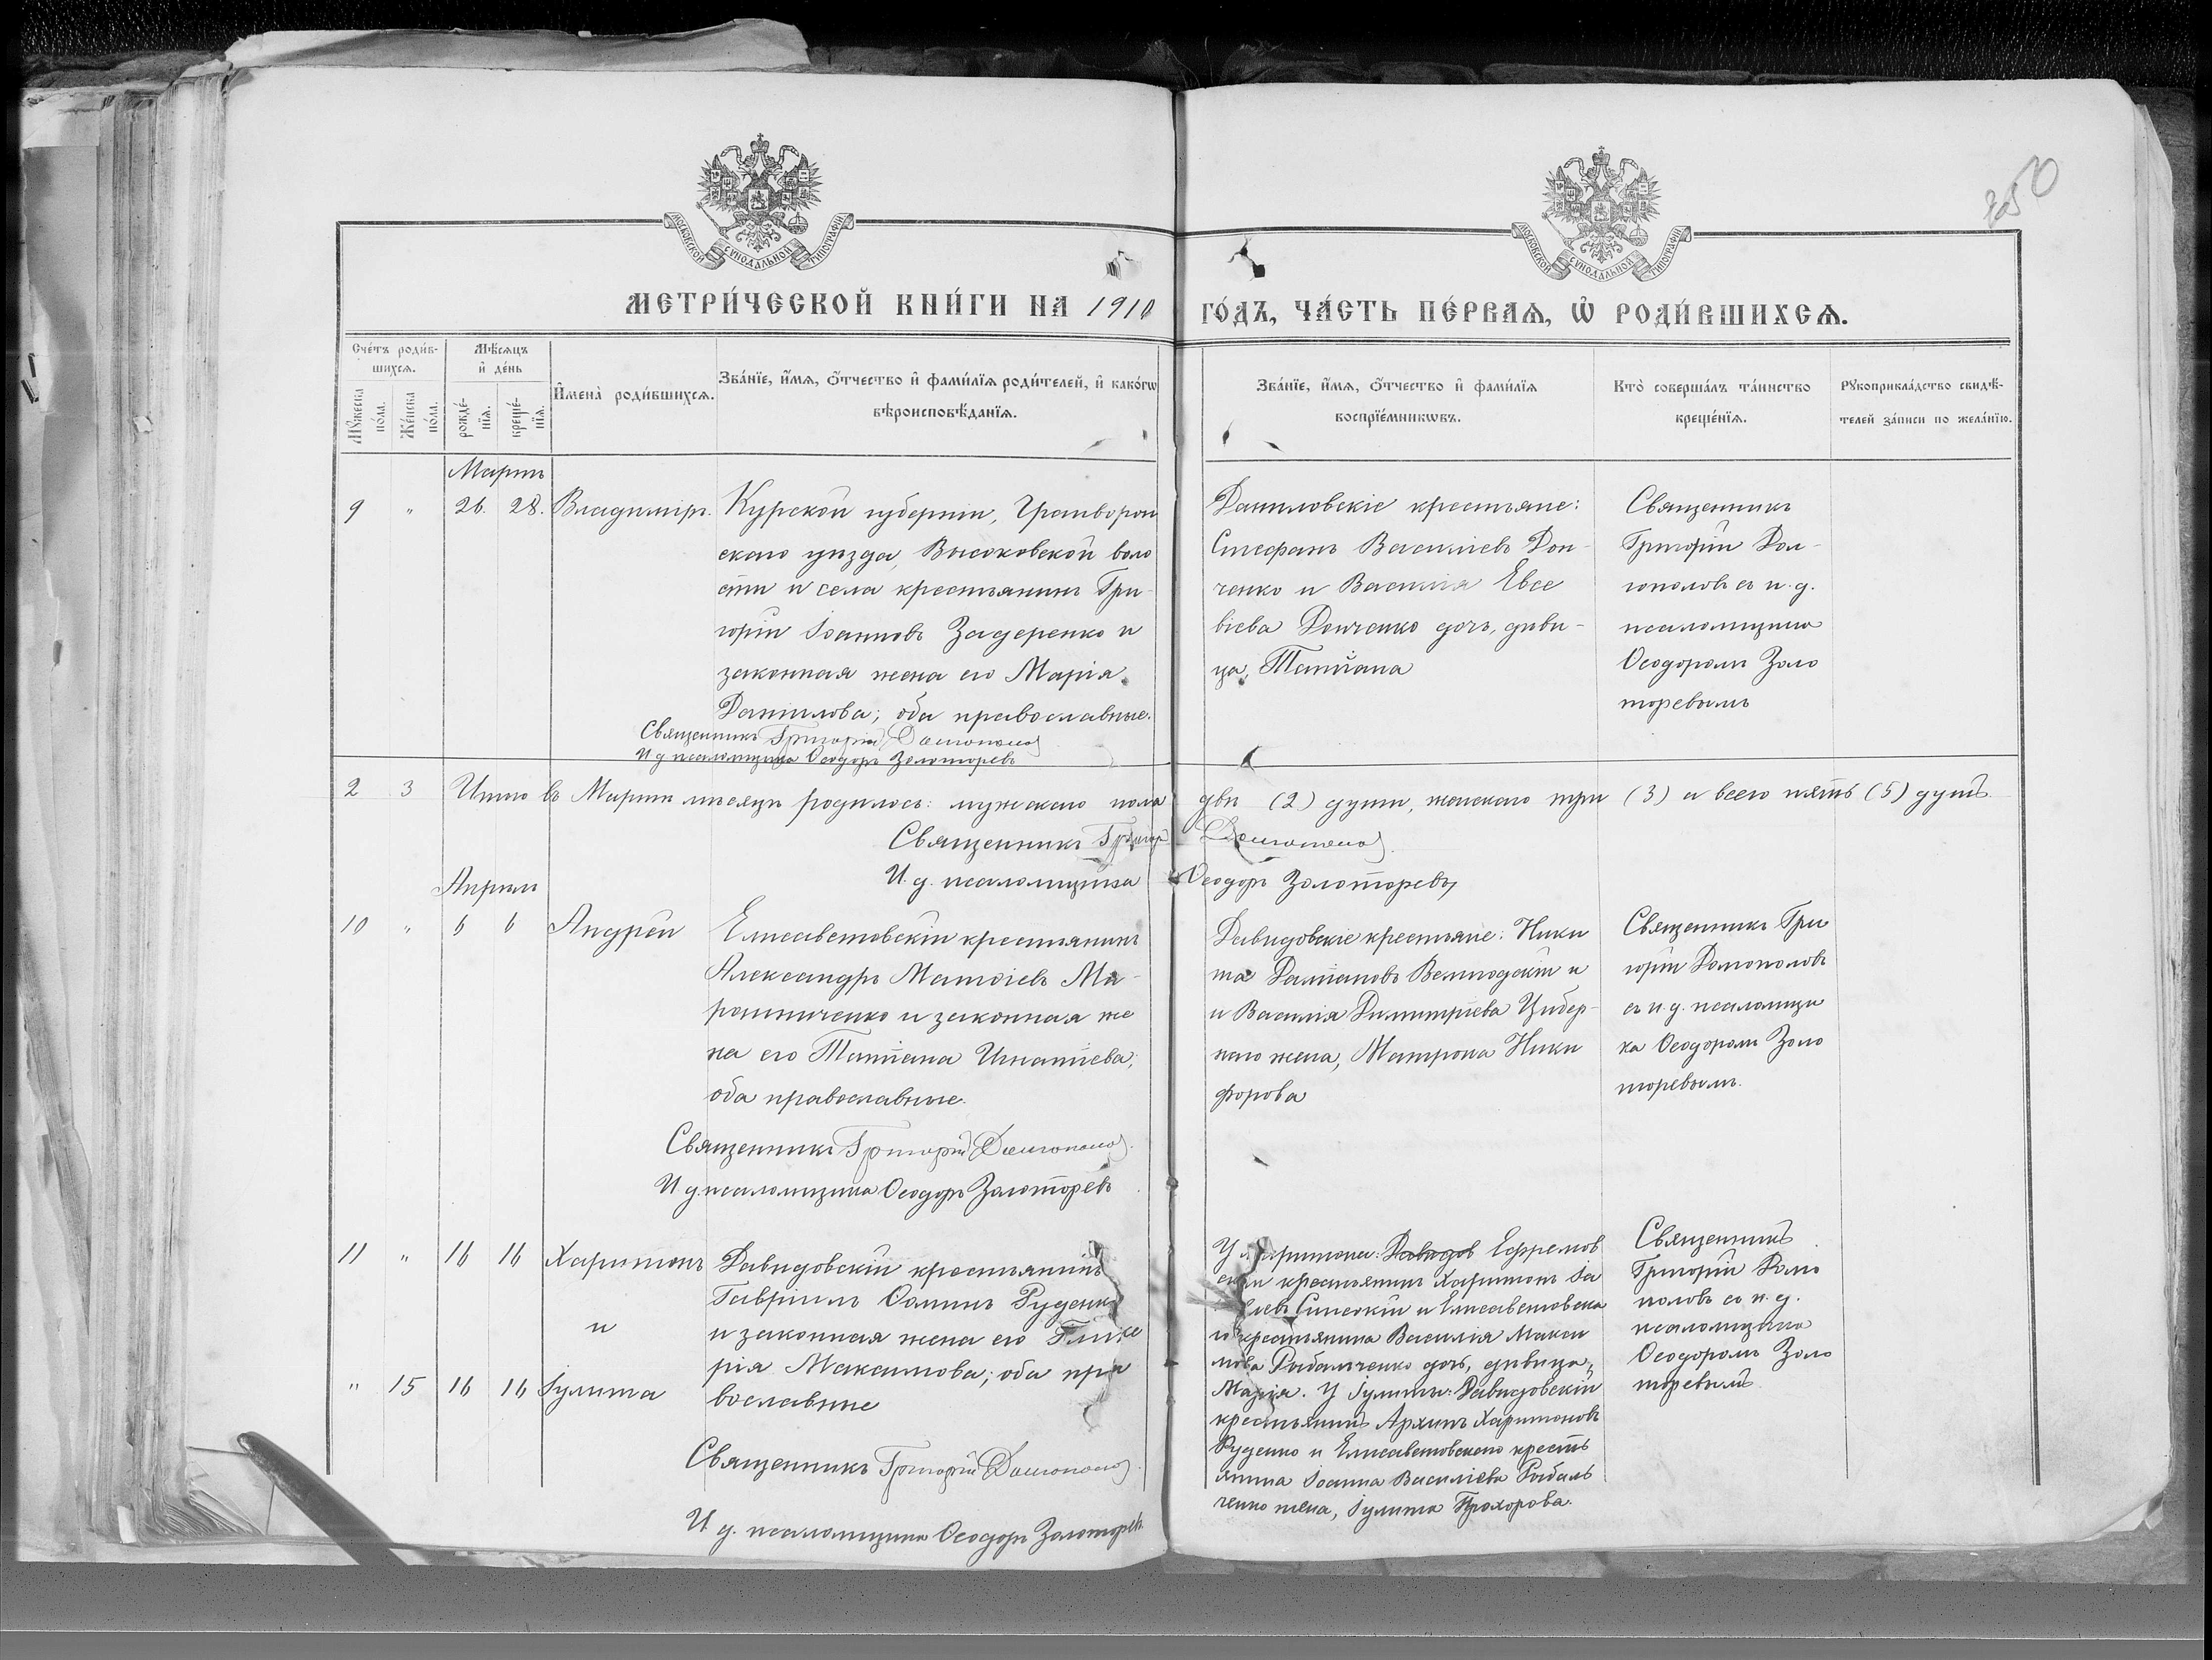 250
МОСКОВСКОЙ СѴНОДАЛЬНОЙ ТИПОГРАФІИ
МОСКОВСКОЙ СѴНОДАЛЬНОЙ ТИПОГРАФІИ
МЕТРИ́ЧЕСКОЙ КНИ́ГИ НА 1910 ГО́ДЪ, ЧА́СТЬ ПЕ́РВАѦ, Ѡ҆ РОДИ́ВШИХСѦ.
Сче́тъ роди́в-
шихсѧ.
Мꙋ́жеска по́ла.
Же́нска по́ла.
Мѣ́сѧцъ
и҆ де́нь
рожде́-
нїѧ.
креще́-
нїѧ.
И҆мена̀ роди́вшихсѧ.
Зва́нїе, и҆́мѧ, ѻ҆́тчество и҆ фами́лїѧ роди́телей, и҆ како́гѡ
вѣроисповѣ́данїѧ.
Зва́нїе, и҆́мѧ, ѻ҆́тчество и҆ фами́лїѧ
воспрїе́мникѡвъ.
Кто̀ соверша́лъ та́инство
креще́нїѧ.
Рꙋкоприкла́дство свидѣ́-
телей за́писи по жела́нїю.
Мартъ
9 " 26. 28. Владиміръ.
Курской губерніи, Грайворон
скаго уѣзда, Высоковской воло
сти и села крестьянинъ Гри-
горій Іоанновъ Задеренко и
законная жена его Марія
Данилова; оба православные.
Священникъ Григорій Долгополов
И д псаломщика Ѳеодоръ Золоторевъ
Даниловскіе крестьяне:
Стефанъ Василіевъ Дон-
ченко и Василія Евсе
віева Донченко дочь, дѣви-
ца, Татіана
Священникъ
Григорій Дол-
гополовъ съ и. д.
псаломщика
Ѳеодоромъ Золо
торевымъ
2 3 Итого въ Мартѣ мѣсяцѣ родилось: мужескаго пола двѣ (2) души, женскаго три (3) а всего пять (5) душъ.
Священникъ Григор Долгополов
И. д. псаломщика Ѳеодоръ Золоторевъ
Апрѣль
10 " 6 6 Андрей
Елисаветовскій крестьянинъ
Александръ Матѳіевъ Ма-
рошниченко и законная же
на его Татіана Игнатіева;
оба православные.
Священникъ Григорій Долгополов
И д. псаломщика Ѳеодоръ Золоторевъ
Давидовскіе крестьяне: Ники
та Даміановъ и
и Василія Димитріева Цибер-
наго жена, Матрона Ники
форова
Священникъ Гри
горій Долгополовъ
съ и. д. псаломщи
ка Ѳеодоромъ Золо
торевымъ.
11 " 16 16 Харитонъ
и
" 15 16 16 Іулита
Давидовскій крестьянинъ
Гавріилъ Ѳоминъ Руденко
и законная жена его Глике
рія Максимова; оба пра
вославные
Священникъ Григорій Долгополов
И д. псаломщика Ѳеодоръ Золоторевъ
У Харитона: Давидов Ефремов
скій крестьянинъ Харитонъ
и Елисаветовска
го крестьянина Василія Макси
мова Рыбальченко дочь, дѣвица,
Марія. У Іулиты: Давидовскій
крестьянинъ Архипъ Харитоновъ
Руденко и Елисаветовскаго кресть
янина Іоанна Василіева Рыбаль
ченко жена, Іулита Прохорова.
Священникъ
Григорій Долго
половъ съ и. д.
псаломщика
Ѳеодоромъ Золо
торевымъ